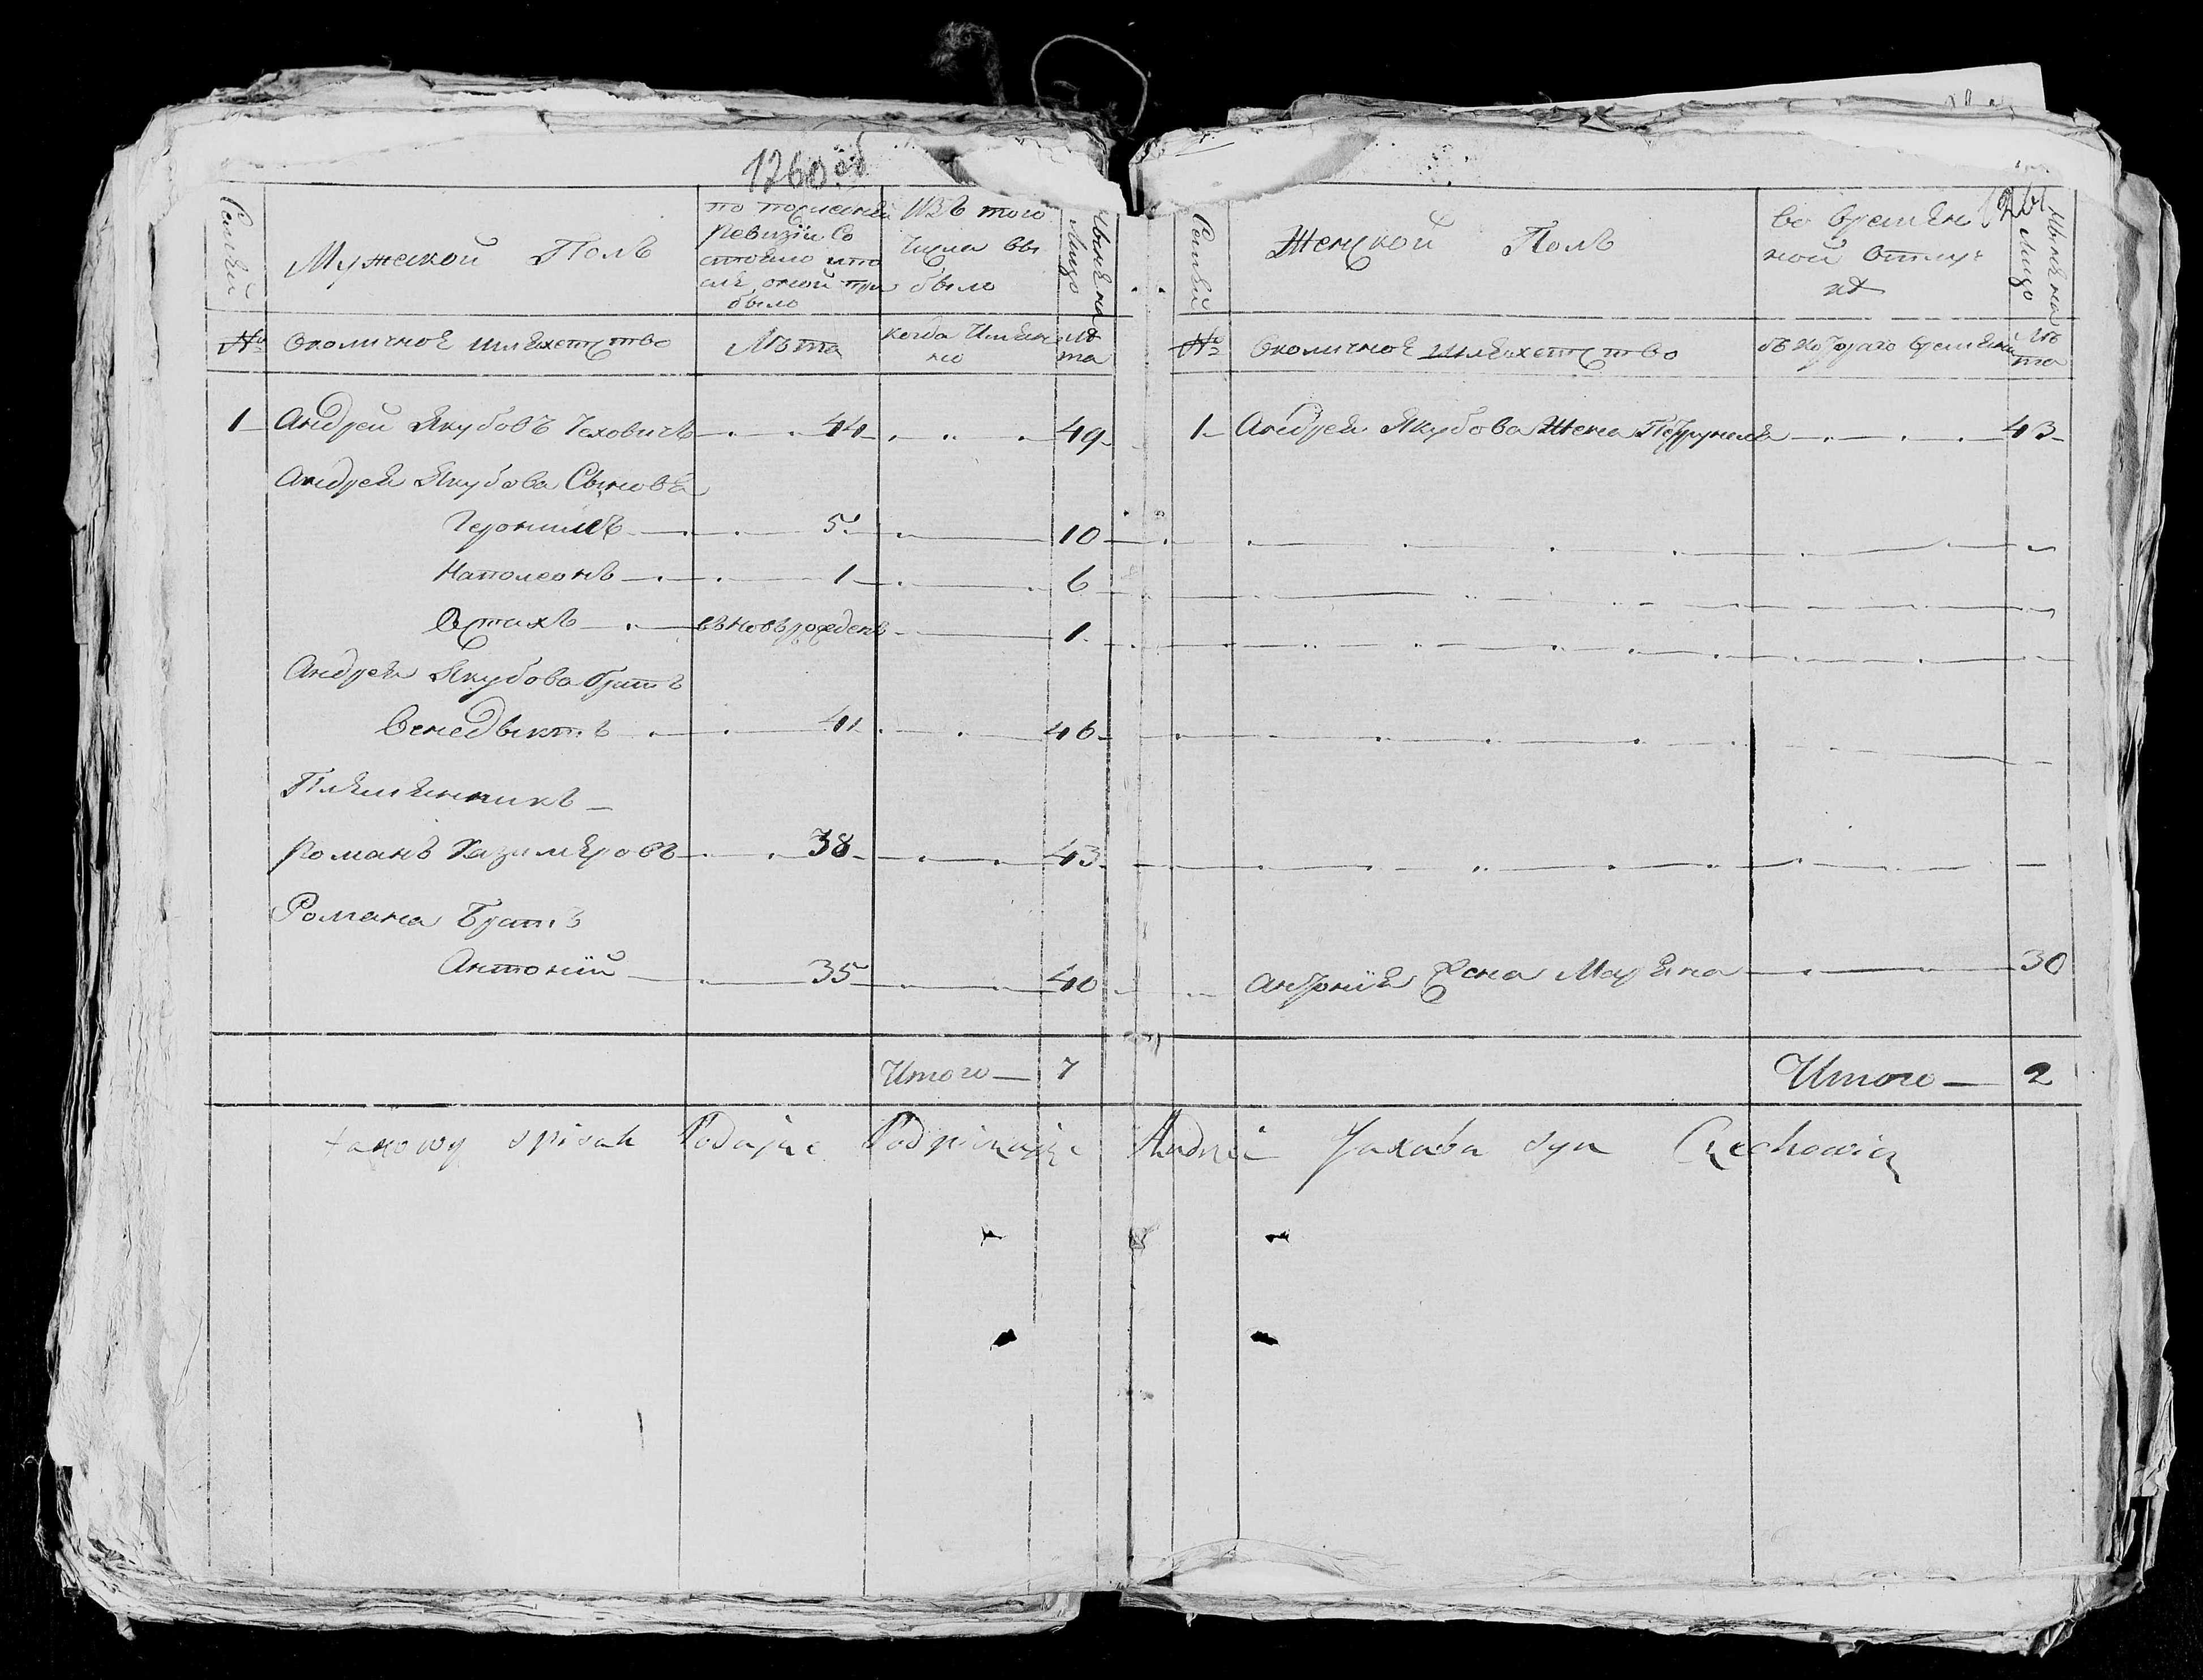 1260 об
Семьи
Мужской Полъ
по последней
Ревизіи Со
стояло и по
сле оной при
было
Изъ того
Числа вы
было
Ныне на
Лицо
№
Околичное шляхетство
Лета
когда Имен
но
Ле
та
1 Андрей Якубовъ Чеховичъ 44 49
Андрея Якубова Сыновя
Геронимъ 5 10
Наполеонъ 1 6
Остахъ въновърожденъ 1
Андрея Якубова братъ
Бенедыктъ 41 46
Племенникъ
Романъ Казимеровъ 38 43
Романа Братъ
Антоній 35 40
Итого 7
1261
Семьи
Женской Полъ
Во времен
ной отлуч
ке
Ныне на
Лицо
№
Околичное шляхетство
съ которого времени
Ле
та
1 Андрея Якубова Жена Петрунеля 43
Антонія Жена Марьяна 30
Итого 2
takowy spisak Podajac Podpisujię Andrei Jakuba syn Czechowicz